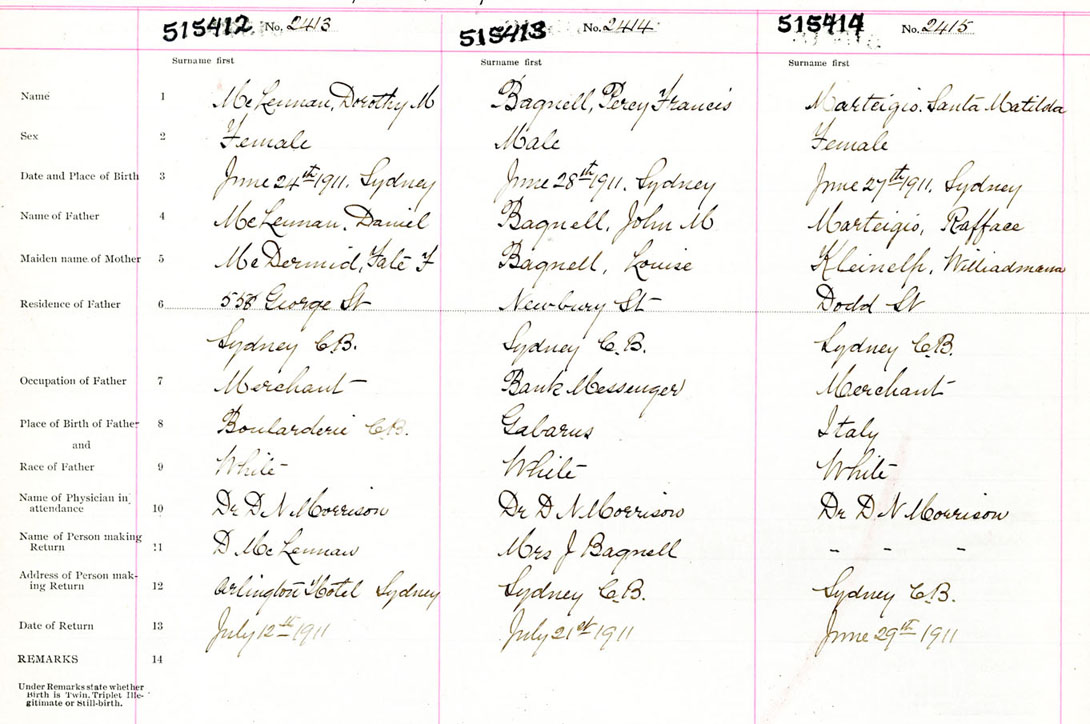 515412 No. 2413 515413 No. 2414 515414 No. 2415
Surname first Surname first Surname first
Name 1 McLennan, Dorothy M Bagnell, Percy Francis Marteigio. Santa Matilda
Sex 2 Female Male Female
Date and Place of Birth 3 June 24th 1911. Sydney June 28th 1911. Sydney June 27th 1911. Sydney
Name of Father 4 McLennan. Daniel Bagnell, John M Marteigio, Raffaee
Maiden name of Mother 5 McDermid, F Bagnell, Louise Kleinelp, Williadmana
Residence of Father 6 558 George St Newbury St Dodd St
Sydney C.B. Sydney C.B. Sydney C.B.
Occupation of Father 7 Merchant Bank Messenger Merchant
Place of Birth of Father 8 Boularderie C.B. Gabarus Italy
and
Race of Father 9 White White White
Name of Physician in
attendance 10 Dr D N Morrison Dr D N Morrison Dr D N Morrison
Name of Person making
Return 11 D McLennan Mrs J Bagnell - - -
Address of Person mak-
ing Return 12 Arlington Hotel Sydney Sydney C.B. Sydney C.B.
Date of Return 13 July 12th 1911 July 21st 1911 June 29th 1911
REMARKS 14
Under Remarks state whether
Birth is Twin, Triplet Ille-
gitimate or Still-birth.